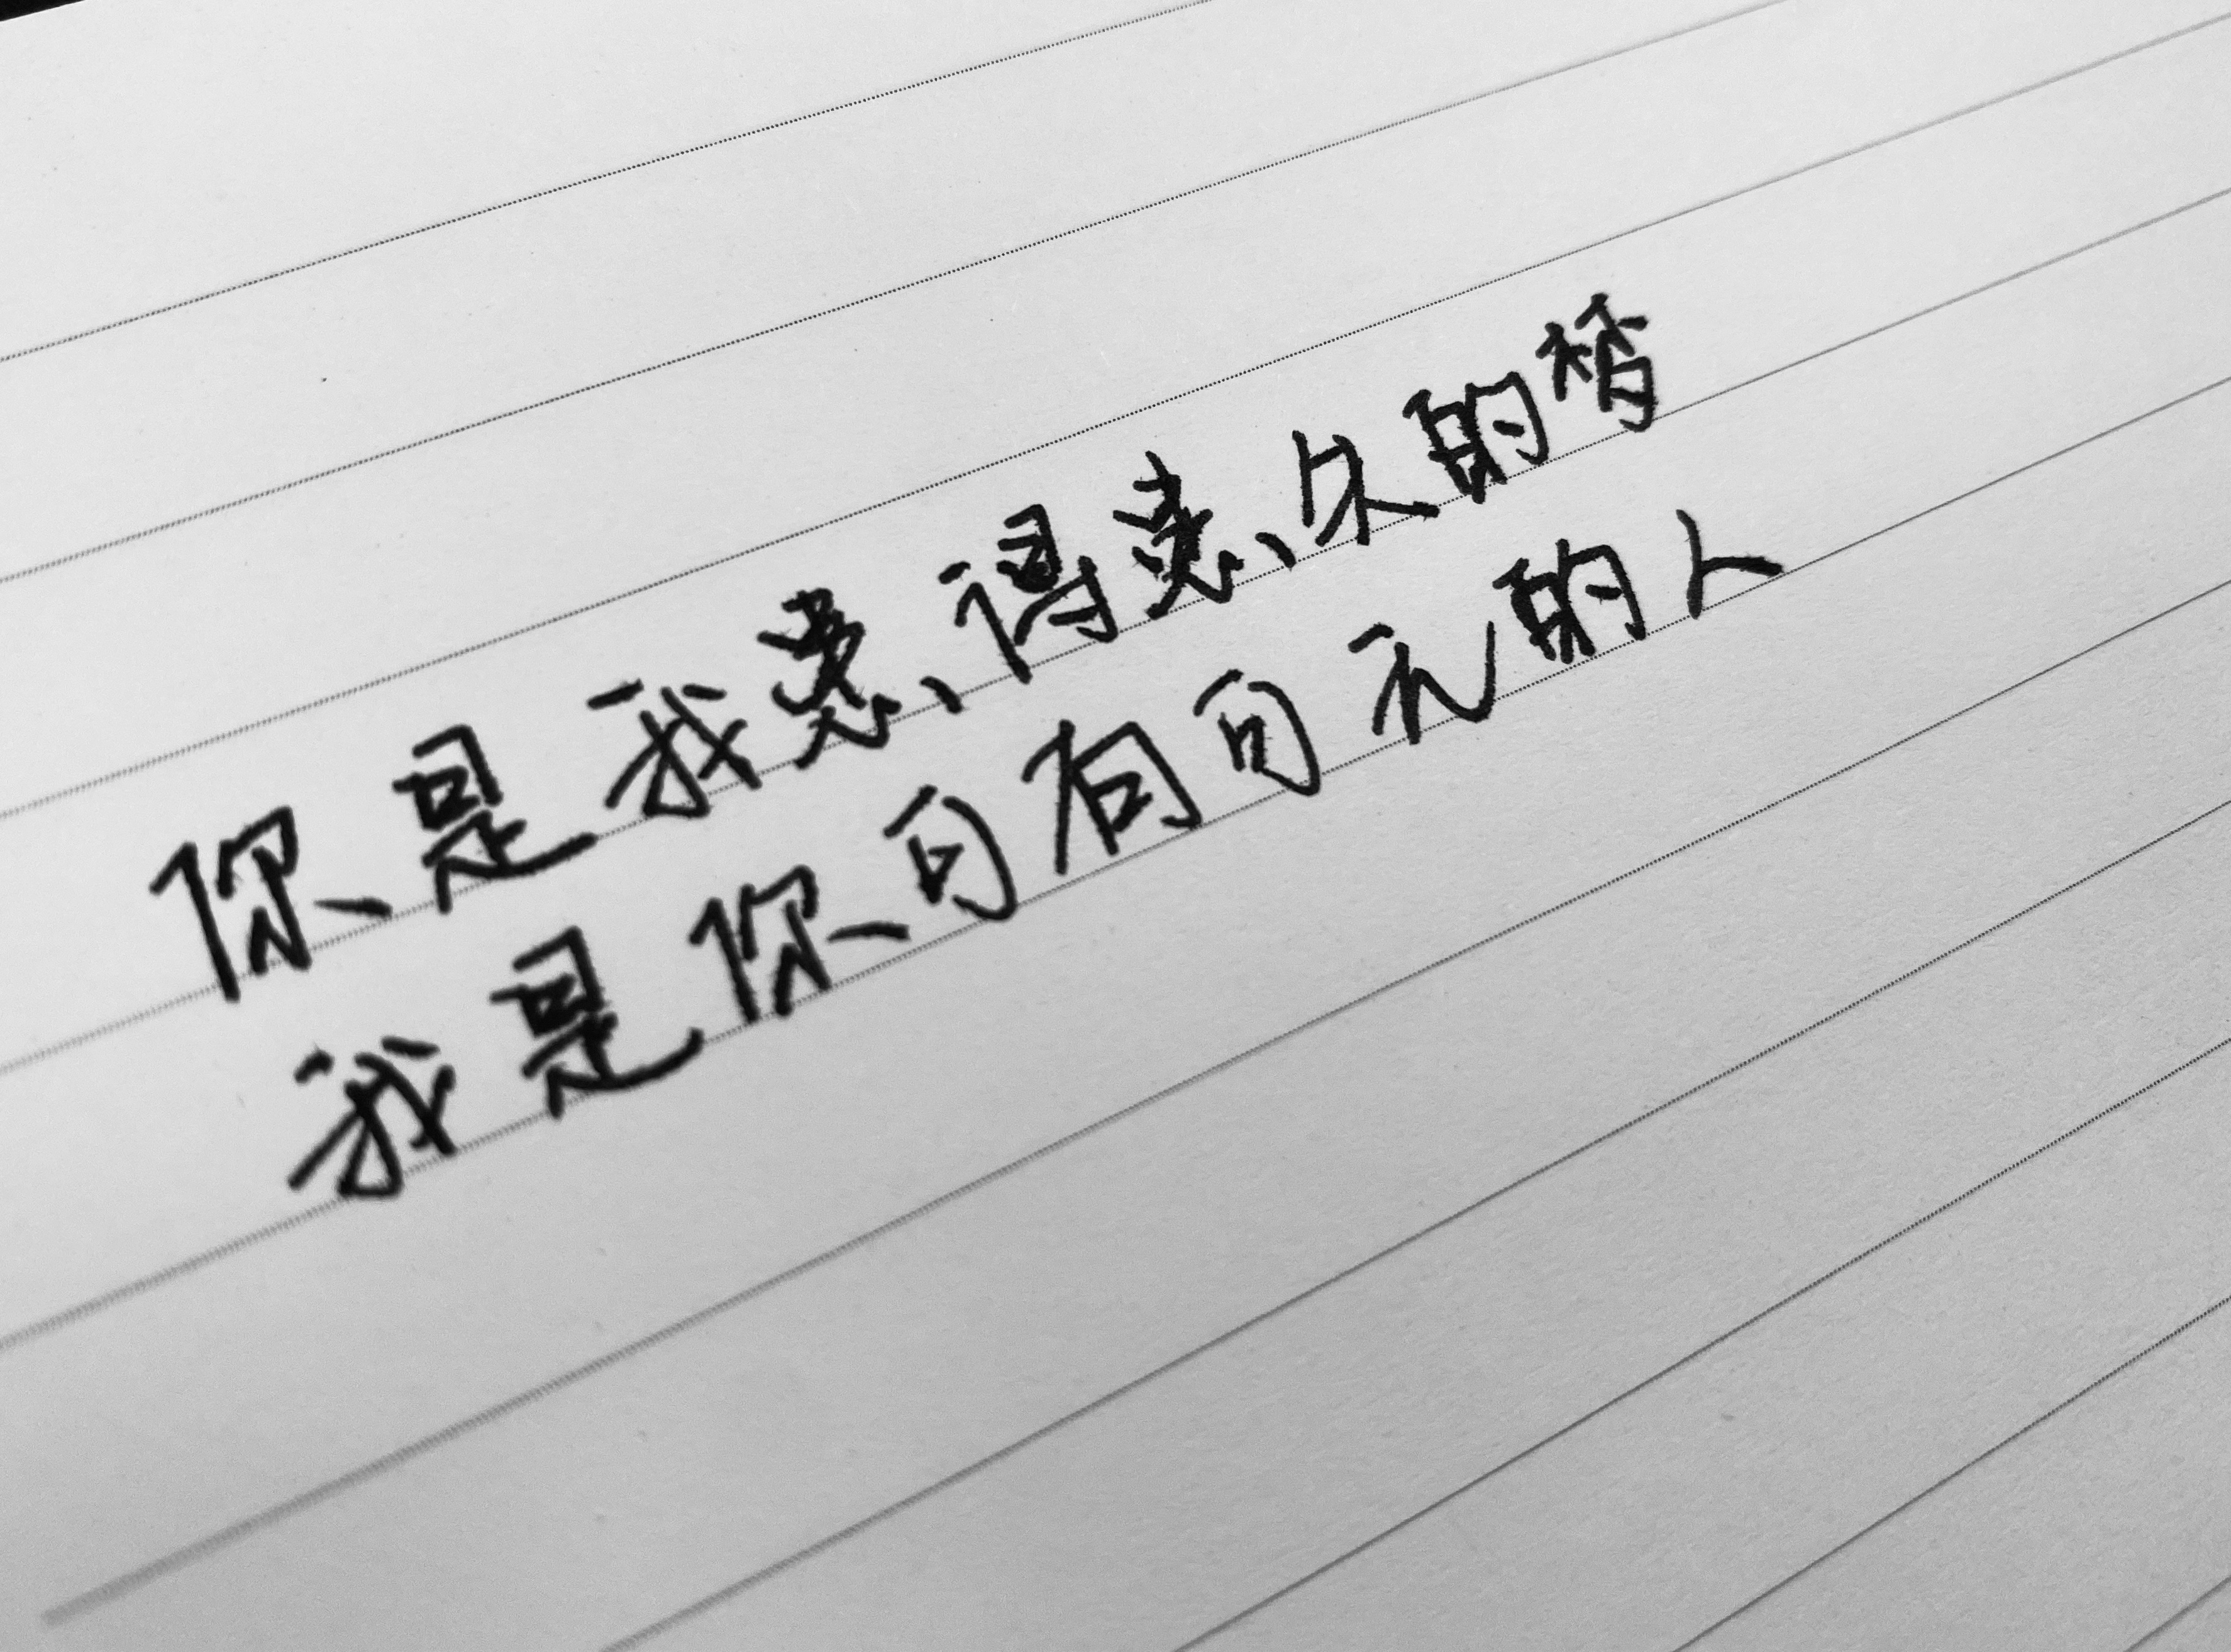 你是我患得患久的梦
我是你可有可无的人